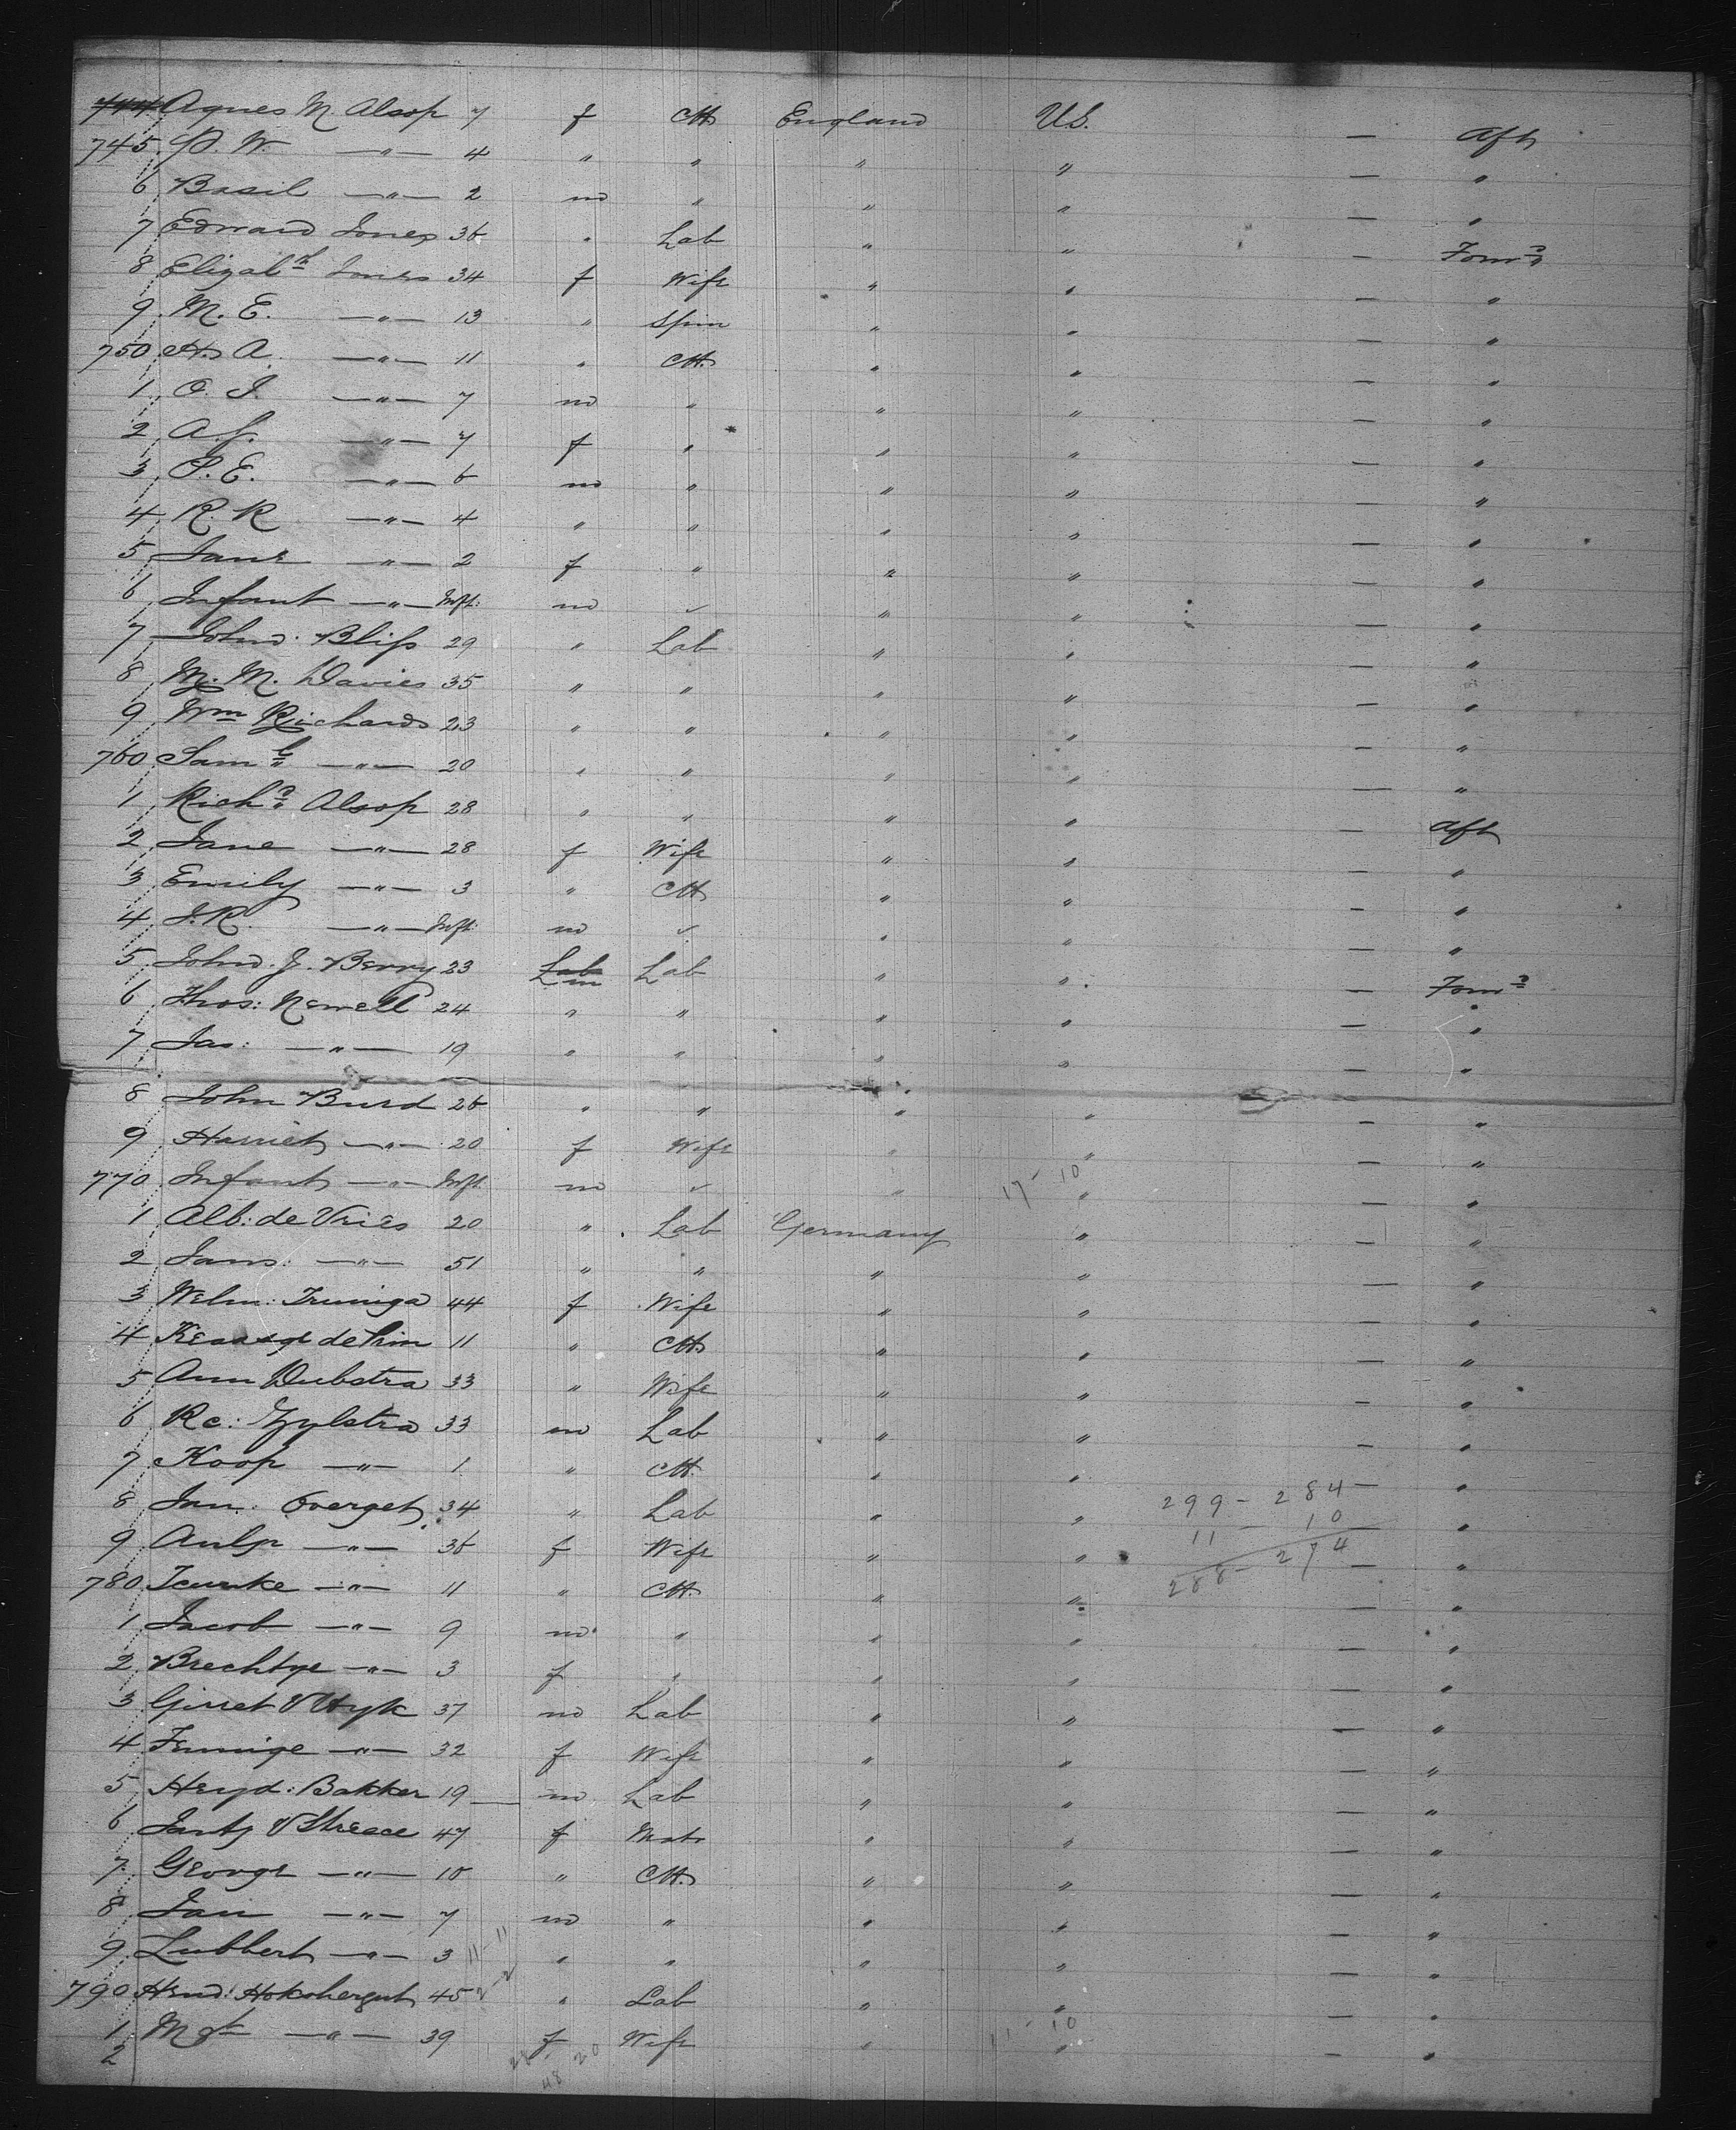 744 Agnes M. Alsop 7 f Ch England U.S. — Aft
745 P. W. —"— 4 " " " " — "
6 Basil —"— 2 m " " " — "
7 Edward Jones 36 " Lab " " — Forwd
8 Elizabth Jones 34 f Wife " " — "
9 M. E. —"— 13 " Spin " " — "
750 H. A. —"— 11 " Ch " " — "
1 O. J. —"— 7 m " " " — "
2 A. J. —"— 7 f " " " — "
3 P. E. —"— 6 m " " " — "
4 R. R. —"— 4 " " " " — "
5 Jane —"— 2 f " " " — "
6 Infant —"— Inft: m ✓ " " — "
7 John Bliss 29 " Lab " " — "
8 M. M. Davies 35 " " " " — "
9 Wm Richards 23 " " " " — "
760 Saml —"— 20 " " " " — "
1 Richd Alsop 28 " " " " — Aft
2 Jane —"— 28 f Wife " " — "
3 Emily —"— 3 " Ch " " — "
4 J. R. —"— Inft: m ✓ " " — "
5 John J. Berry 23 m Lab " " — Forwd
6 Thos: Newell 24 " " " " — "
7 Jas: —"— 19 " " " " — "
8 John Burd 26 " " " " — "
9 Harriet —"— 20 f Wife " " — "
770 Infant —"— Inft. m ✓ " " — "
17 - 10
1 Alb: de Vries 20 " Lab Germany " — "
2 Jans: —"— 51 " " " " — "
3 Welm: 44 f Wife " " — "
4 11 " Ch " " — "
5 Ann Dubstra 33 " Wife " " — "
6 Rc: Zylstra 33 m Lab " " — "
7 Koop —"— 1 " Ch " " — "
8 Jan: Overget 34 " Lab " " — "
299 - 284
11 - 10
288 - 274
9 —"— 36 f Wife " " — "
780 —"— 11 " Ch " " — "
1 Jacob —"— 9 m " " " — "
2 Brechtye —"— 3 f " " " — "
3 Girret V Wyk 37 m Lab " " — "
4 Femige —"— 32 f Wife " " — "
5 Heyd: Bakker 19 m Lab " " — "
6 47 f Matr " " — "
7 George —"— 10 " Ch " " — "
8 Jan —"— 7 m " " " — "
9 Lubbert —"— 3 " " " " — "
11 - 11
2 - 2
790 Hend: 45 " Lab " " — "
1 Mgt —"— 39 f Wife " " — "
11 - 10
2
20
48